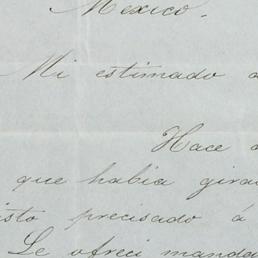 Mexico.
Mi estimado
Hace
que habia gira
isto precisado á
Le ofreci manda